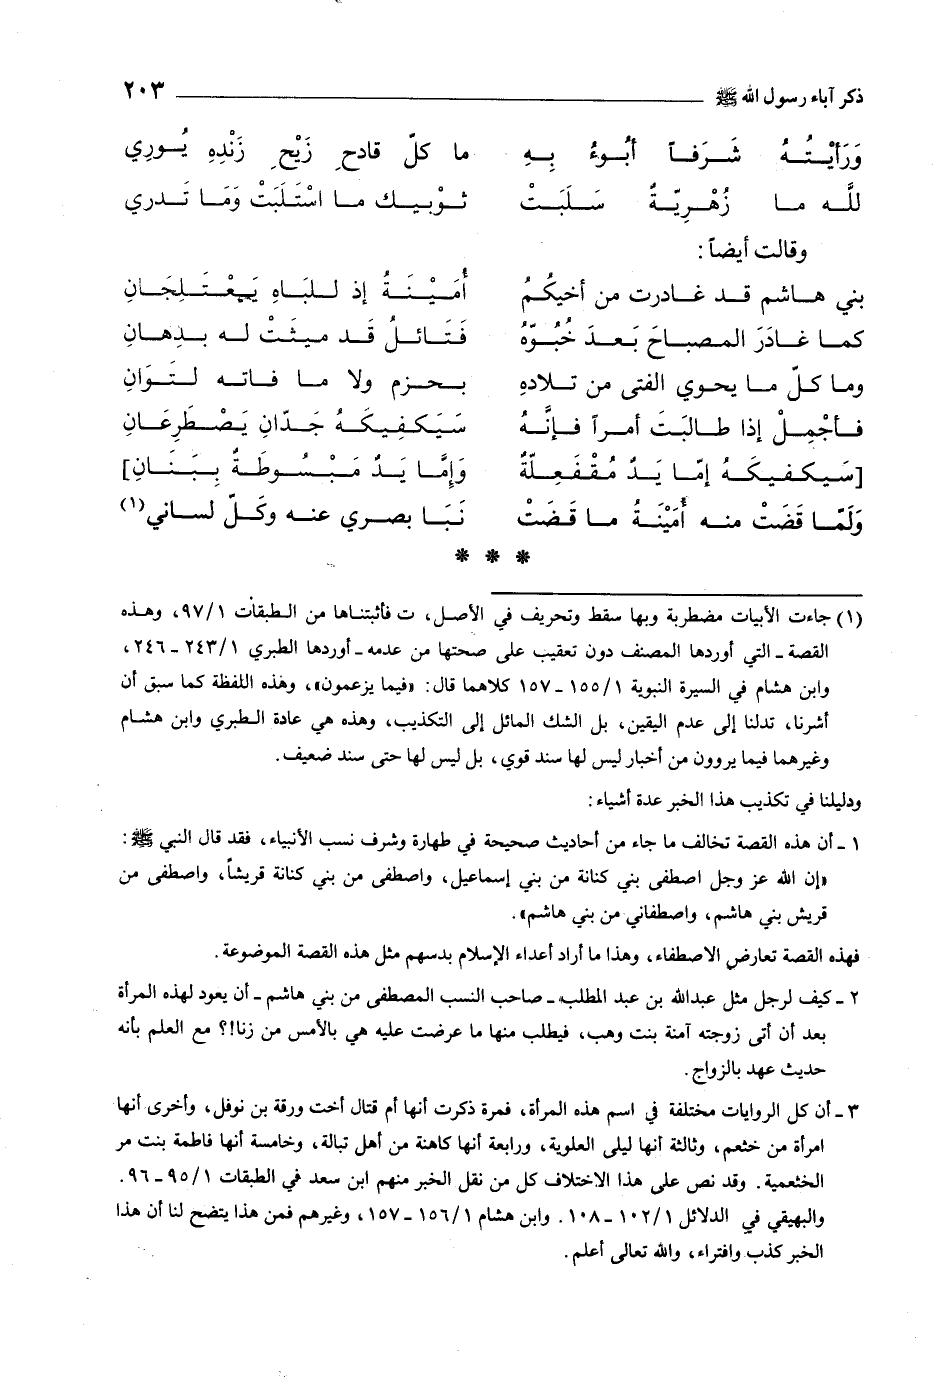 ذكر آباء رسول الله ﷺ ٢٠٣
وَرَأَيْتُهُ شَرَفاً أَبُوءُ بِهِ ما كلّ قادحِ زَيْحِ زَنْدِهِ يُورِي
للَّه ما زُهْرِيّةٌ سَلَبَتْ ثَوْبيك ما اسْتَلَبَتْ وَمَا تَدري
وقالت أيضاً:
بني هاشم قد غادرت من أخيكُمُ أُمَيْنَةُ إذ للبَاهِ يَعْتَلِجَانِ
كما غَادَرَ المصباحَ بَعدَ خُبُوِّهُ فَتَائلُ قَد ميثَتْ له بدِهانِ
وما كلّ ما يحوي الفتى من تلاده بحزم ولا ما فاته لتَوَانِ
فأجْمِلْ إذا طالبَتَ أمراً فإنَّهُ سَيَكفِيكَهُ جَدّانِ يَصْطَرِعَانِ
[سَيكفيكَهُ إمّا يَدٌ مُقْفَعِلّةٌ وَإمَّا يَدٌ مَبْسُوطَةٌ بِبَنَانِ]
وَلَمّا قَضَتْ منه أُمَيْنَةُ ما قَضَتْ نَبَا بصري عنه وكَلّ لساني(١)
* * *
(١) جاءت الأبيات مضطربة وبها سقط وتحريف في الأصل، ت فأثبتناها من الطبقات ٩٧/١، وهذه
القصة ـ التي أوردها المصنف دون تعقيب على صحتها من عدمه ـ أوردها الطبري ٢٤٣/١ ـ ٢٤٦،
وابن هشام في السيرة النبوية ١٥٥/١ ـ ١٥٧ كلاهما قال: «فيما يزعمون»، وهذه اللفظة كما سبق أن
أشرنا، تدلنا إلى عدم اليقين، بل الشك المائل إلى التكذيب، وهذه هي عادة الطبري وابن هشام
وغيرهما فيما يروون من أخبار ليس لها سند قوي، بل ليس لها حتى سند ضعيف.
ودليلنا في تكذيب هذا الخبر عدة أشياء:
١ ـ أن هذه القصة تخالف ما جاء من أحاديث صحيحة في طهارة وشرف نسب الأنبياء، فقد قال النبي ﷺ:
«إن الله عز وجل اصطفى بني كنانة من بني إسماعيل، واصطفى من بني كنانة قريشاً، واصطفى من
قريش بني هاشم، واصطفاني من بني هاشم».
فهذه القصة تعارض الاصطفاء، وهذا ما أراد أعداء الإسلام بدسهم مثل هذه القصة الموضوعة.
٢ ـ كيف لرجل مثل عبدالله بن عبد المطلب ـ صاحب النسب المصطفى من بني هاشم ـ أن يعود لهذه المرأة
بعد أن أتى زوجته آمنة بنت وهب، فيطلب منها ما عرضت عليه هي بالأمس من زنا!؟ مع العلم بأنه
حديث عهد بالزواج.
٣ ـ أن كل الروايات مختلفة في اسم هذه المرأة، فمرة ذكرت أنها أم قتال أخت ورقة بن نوفل، وأخرى أنها
امرأة من خثعم، وثالثة أنها ليلى العلوية، ورابعة أنها كاهنة من أهل تبالة، وخامسة أنها فاطمة بنت مر
الخثعمية. وقد نص على هذا الاختلاف كل من نقل الخبر منهم ابن سعد في الطبقات ٩٥/١ ـ ٩٦.
والبهيقي في الدلائل ١٠٢/١ ـ ١٠٨. وابن هشام ١٥٦/١ ـ ١٥٧، وغيرهم فمن هذا يتضح لنا أن هذا
الخبر كذب وافتراء، والله تعالى أعلم.